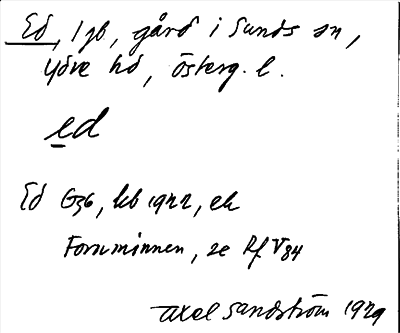 Ed, 1 gb, gård i Sunds sn,
Ydre hd, Österg. l.
ed
Ed G36, kb 1922, ek
Fornminnen, se Rf V 84
Axel Sandström 1929